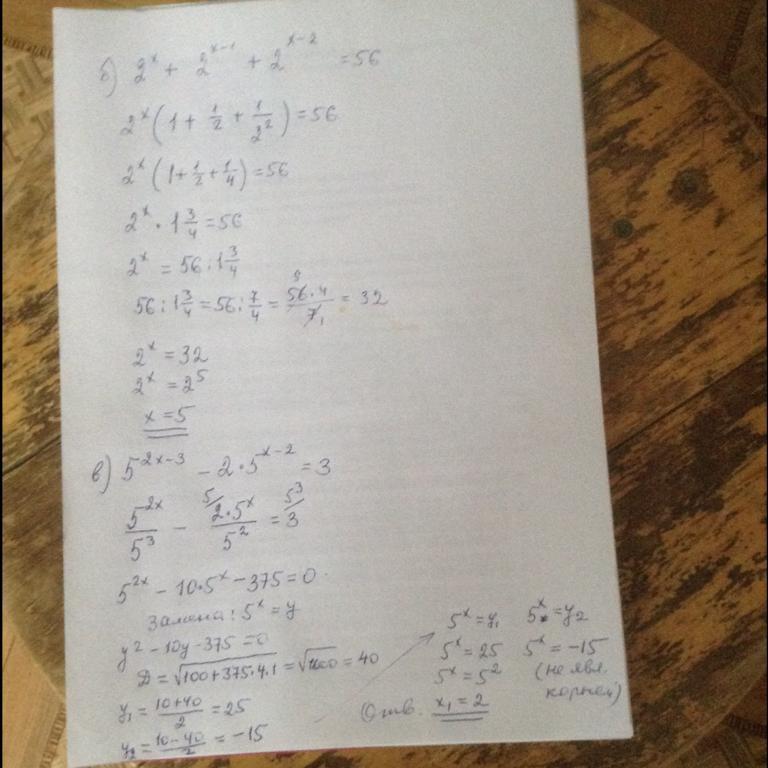 б) 2^x + 2^(x-1) + 2^(x-2) = 56
2^x (1 + 1/2 + 1/2^2) = 56
2^x (1 + 1/2 + 1/4) = 56
2^x · 1 3/4 = 56
2^x = 56 : 1 3/4
56 : 1 3/4 = 56 : 7/4 = 56·4/7 = 32
8
1
2^x = 32
2^x = 2^5
x = 5
в) 5^(2x-3) - 2·5^(x-2) = 3
5^(2x)/5^3 - 5/ 2·5^x/5^2 = 5^3/ 3
5^(2x) - 10·5^x - 375 = 0
Замена: 5^x = y
y^2 - 10y - 375 = 0
D = √(100 + 375·4·1) = √1600 = 40
y₁ = (10+40)/2 = 25
y₂ = (10-40)/2 = -15
5^x = y₁
5^x = 25
5^x = 5^2
5^x = y₂
5^x = -15
(не явл.
корней)
Отв. x₁ = 2